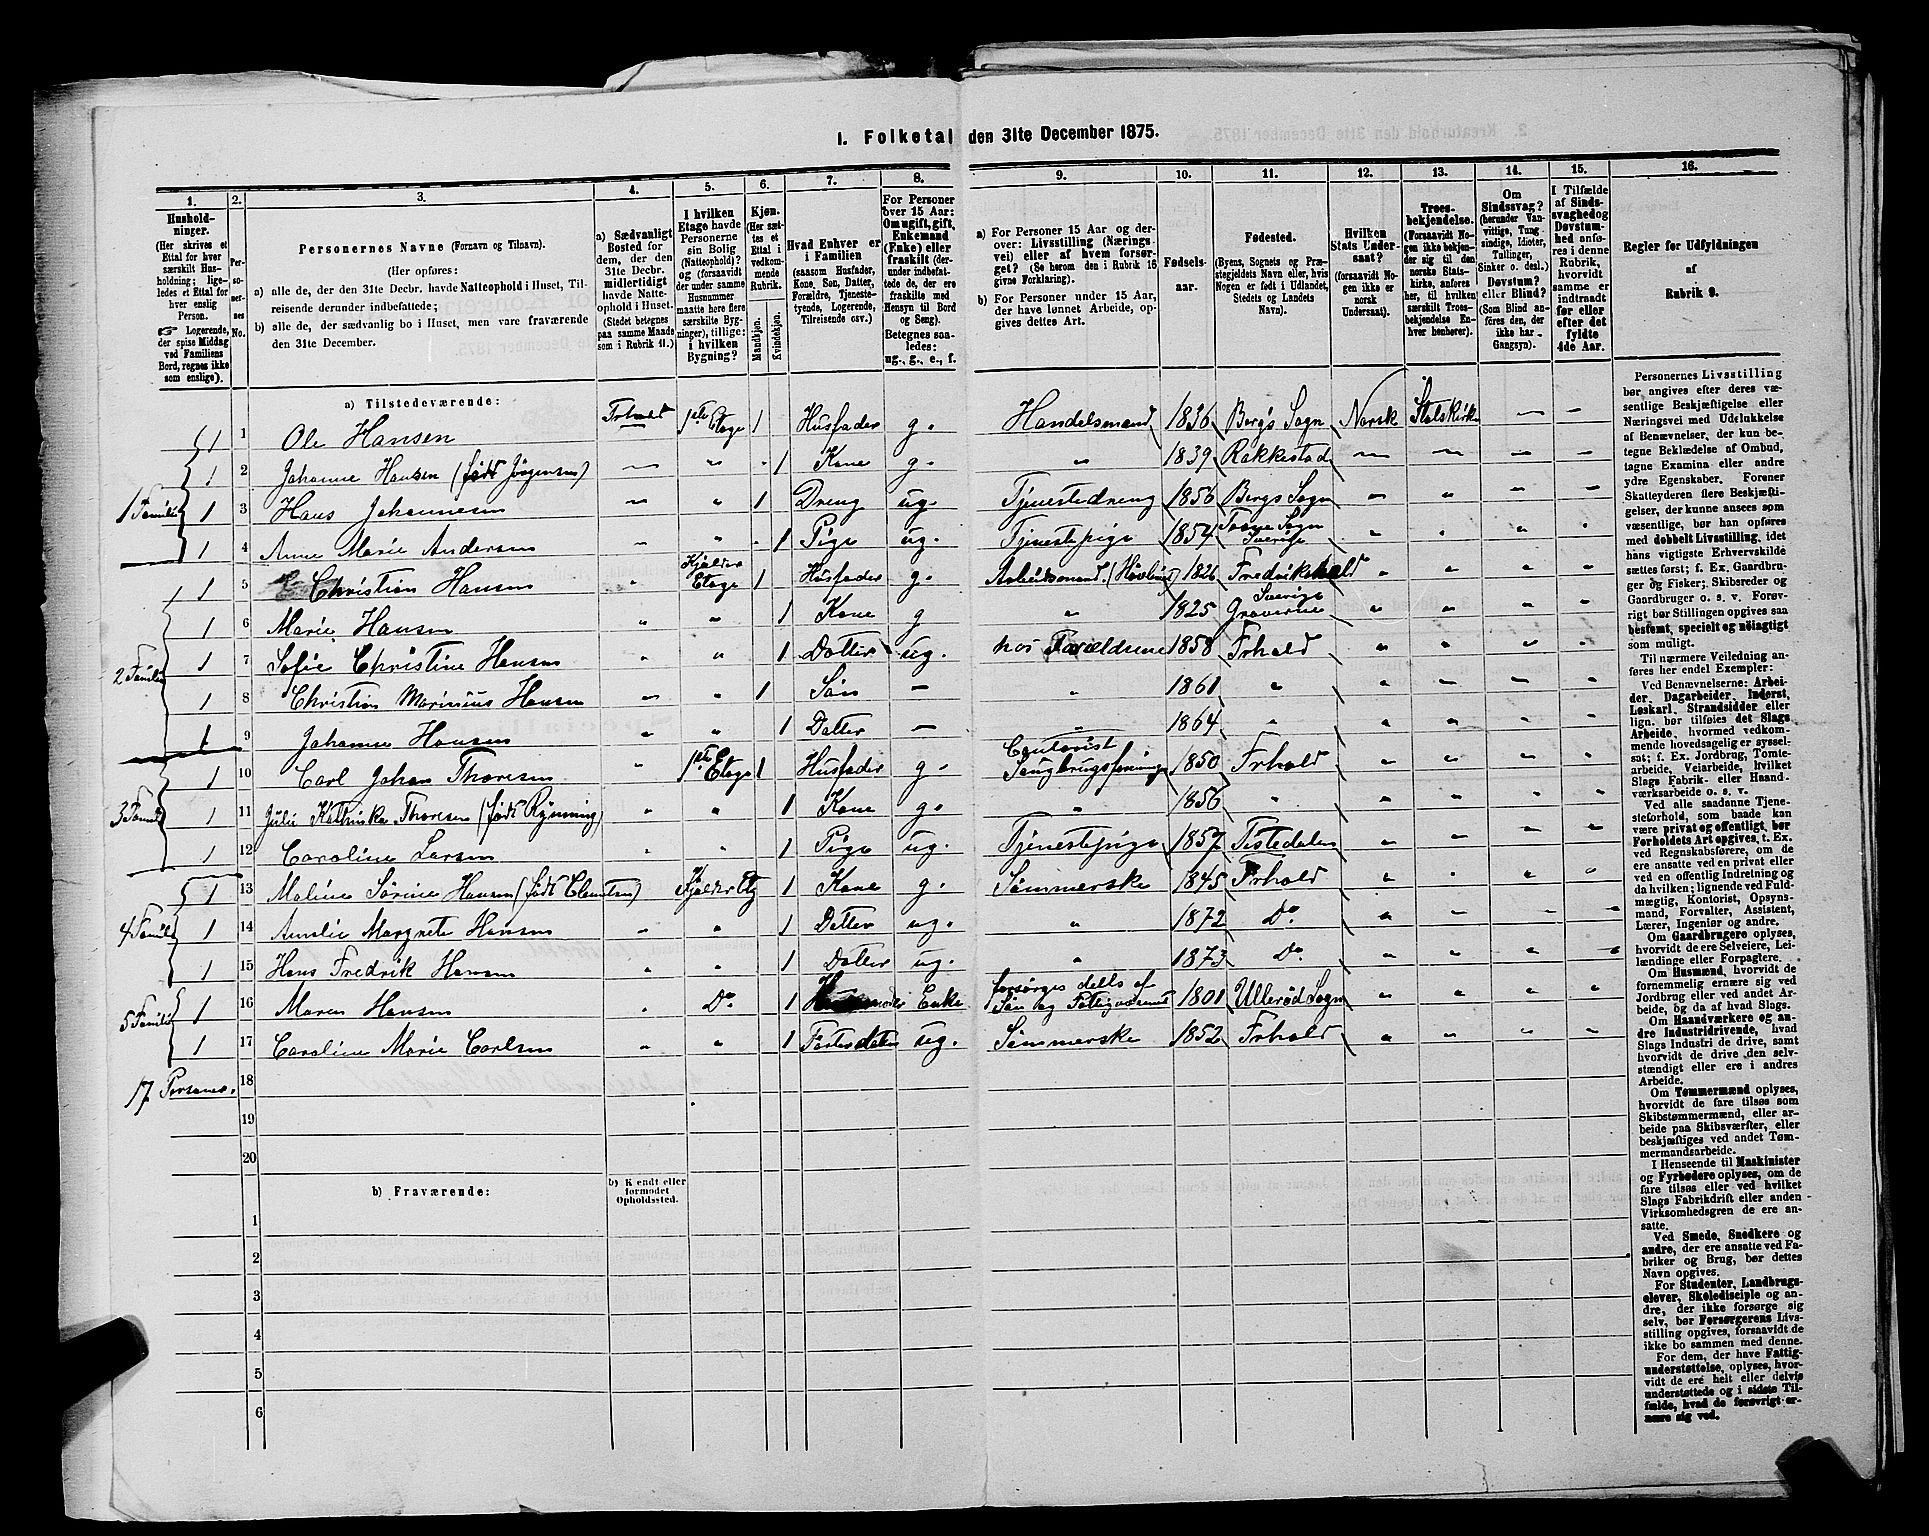 1. Folketal den 31te December 1875.
1. 2. 3. 4. 5. 6. 7. 8. 9. 10. 11. 12. 13. 14. 15. 16.
Hushold-
ninger.
(Her skrives et
Ettal for hver
særskilt Hus-
holdning; lige-
ledes et Ettal for
hver enslig
Person.
☞ Logerende,
der spise Middag
ved Familiens
Bord, regnes ikke
som enslige).
Per-
so-
ner-
nes
No.
Personernes Navne (Fornavn og Tilnavn).
(Her opføres:
a) alle de, der den 31te Decbr. havde Natteophold i Huset, Til-
reisende derunder indbefattede;
b) alle de, der sædvanlig bo i Huset, men vare fraværende
den 31te December.
a) Sædvanligt
Bosted for
dem, der den
31te Decbr.
midlertidigt
havde Natte-
ophold i Huset.
(Stedet betegnes
paa samme Maade
som i Rubrik 11.)
I hvilken
Etage havde
Personerne
sin Bolig
(Natteophold)?
og (forsaavidt
der under samme
Husnummer
maatte høre flere
særskilte Byg-
ninger), tillige:
i hvilken
Bygning?
Kjøn.
(Her sæt-
tes et
Ettal i
vedkom-
mende
Rubrik.)
Mandkjøn.
Kvindekjøn.
Hvad Enhver er
i Familien
(saasom Husfader,
Kone, Søn, Datter,
Forældre, Tjeneste-
tyende, Logerende,
Tilreisende osv.)
For Personer
over 15 Aar:
Om ugift, gift,
Enkemand
(Enke) eller
fraskilt (der-
under indbefat-
tede de, der ere
fraskilte med
Hensyn til Bord
og Seng).
Betegnes saa-
ledes:
ug., g., e., f.
a) For Personer 15 Aar og der-
over: Livsstilling (Nærings-
vei) eller af hvem forsør-
get? (Se herom den i Rubrik 16
givne Forklaring).
b) For Personer under 15 Aar,
der have lønnet Arbeide, op-
gives dettes Art.
Fødsels-
aar.
Fødested.
(Byens, Sognets og Præ-
stegjeldets Navn eller, hvis
Nogen er født i Udlandet,
Stedets og Landets
Navn).
Hvilken
Stats Under-
saat?
(forsaavidt No-
gen ikke er
norsk
Undersaat).
Troes-
bekjendelse.
(Forsaavidt No-
gen ikke bekjen-
der sig til den
norske Stats-
kirke, anføres
her, til hvilken
særskilt Troes-
bekjendelse En-
hver henhører).
Om
Sindssvag?
(herunder Van-
vittige, Tung-
sindige, Idioter,
Tullinger,
Sinker o. desl.)
Døvstum?
eller Blind?
(Som Blind an-
føres den, der
ikke har
Gangsyn).
I Tilfælde
af Sinds-
svaghed og
Døvstum-
hed anfø-
res i denne
Rubrik,
hvorvidt
samme er
indtraadt
før eller
efter det
fyldte
4de Aar.
Regler for Udfyldningen
af
Rubrik 9.
a) Tilstedeværende:
1 1 Ole Hansen Frhald 1ste Etage 1 Husfader g. Handelsmand 1836 Bergs Sogn Norsk Statskirke — —
1 2 Johanne Hansen (født Jörgensen) — " 1 Kone g. " 1839 Rakkestad — — — —
1 Familie 1 3 Hans Johannesen — " 1 Dreng ug. Tjenestedreng 1856 Bergs Sogn
1 4 Anne Marie Andersen — " 1 Pige ug. Tjenestepige 1854 Sogn Sverige
1 5 Christian Hansen " Kjælder Etage 1 Husfader g. Arbeidsmand 1826 Fredrikshald
1 6 Marie Hansen " " 1 Kone g " 1825 Sverige
2 Familie 1 7 Sofie Christine Hansen " " 1 Datter ug. hos Forældrene 1858 Frhald
1 8 Christian Marinius Hansen " " 1 Sön — " 1861 "
1 9 Johanne Hansen " " 1 Datter — " 1864 "
1 10 Carl Johan Thoresen " 1ste Etage 1 Husfader g. Contorist 1850 Frhald
3 Famili 1 11 Julie Kathrinka Thoresen (født Rynning) " " 1 Kone g. " 1856 "
1 12 Caroline Larsen " " 1 Pige ug. Tjenestepige 1857 Tistedalen
1 13 Maline Sörine Hansen (født Clemetsen) Kjælder Etg 1 Kone g. Sömmerske 1845 Frhald
4 Famili 1 14 Amalie Margrete Hansen " " 1 Datter ug. " 1872 Do.
1 15 Hans Fredrik Hansen " " 1 Datter ug. " 1873 Do.
5 Famili 1 16 Maren Hansen " Do. 1 Enke forsörges dels af Sön og Fattigvæsenet 1801 Ulleröd Sogn
1 17 Caroline Marie Carlsen " " 1 ug. Sömmerske 1852 Frhald
17 Personer. 18
19
20
b) Fraværende:
b) Kjendt eller
formodet
Opholdssted.
1
2
3
4
5
6
Personernes Livsstilling
bør angives efter deres væ-
sentlige Beskjæftigelse eller
Næringsvei med Udelukkelse
af Benævnelser, der kun be-
tegne Beklædelse af Ombud,
tagne Examina eller andre
ydre Egenskaber. Forener
Skatteyderen flere Beskjæfti-
gelser, der kunne ansees som
væsentlige, bør han opføres
med dobbelt Livsstilling, idet
hans vigtigste Erhvervskilde
sættes først; f. Ex. Gaardbru-
ger og Fisker; Skibsreder og
Gaardbruger o. s. v. Forøv-
rigt bør Stillingen opgives saa
bestemt, specielt og nøiagtigt
som muligt.
Til nærmere Veiledning an-
føres her endel Exempler:
Ved Benævnelserne: Arbei-
der, Dagarbeider, Inderst,
Løskarl, Strandsidder eller
lign. bør tilføies det Slags
Arbeide, hvormed vedkom-
mende hovedsagelig er syssel-
sat; f. Ex. Jordbrug, Tomte-
arbeide, Veiarbeide, hvilket
Slags Fabrik- eller Haand-
værksarbeide o. s. v.
Ved alle saadanne Tjene-
steforhold, som baade kan
være privat og offentligt, bør
Forholdets Art opgives, t. Ex.
ved Regnskabsførere, om de
ere ansatte ved en privat eller
ved en offentlig Indretning og
da hvilken; lignende ved Fuld-
mægtig, Kontorist, Opsyns-
mand, Forvalter, Assistent,
Lærer, Ingeniør og andre.
Om Gaardbrugere oplyses,
hvorvidt de ere Selveiere, Lei-
lændinge eller Forpagtere.
Om Husmænd, hvorvidt de
fornemmelig ernære sig ved
Jordbrug eller ved andet Ar-
beide, og da af hvad Slags.
Om Haandværkere og an-
dre Industridrivende, hvad
Slags Industri de drive, samt
hvorvidt de drive den selv-
stændigt eller ere i andres
Arbeide.
Om Tømmermænd oplyses,
hvorvidt de fare tilsøs som
Skibstømmermænd, eller ar-
beide paa Skibsværfter, eller
beskjæftiges ved andet Tøm-
mermandsarbeide.
I Henseende til Maskinister
og Fyrbødere oplyses, om de
fare tilsøs eller ved hvilket
Slags Fabrikdrift eller anden
Virksomhedsgren de ere an-
satte.
Ved Smede, Snedkere og
andre, der ere ansatte ved Fa-
briker og Brug, bør dettes
Navn opgives.
For Studenter, Landbrugs-
elever, Skoledisciple og an-
dre, der ikke forsørge sig
selv, bør Forsørgerens Livs-
stilling opgives, forsaavidt de
ikke bo sammen med denne.
For dem, der have Fattig-
understøttelse, oplyses, hvor-
vidt de ere helt eller delvis
understøttede og i sidste Til-
fælde, hvad de forøvrigt er-
nære sig ved.